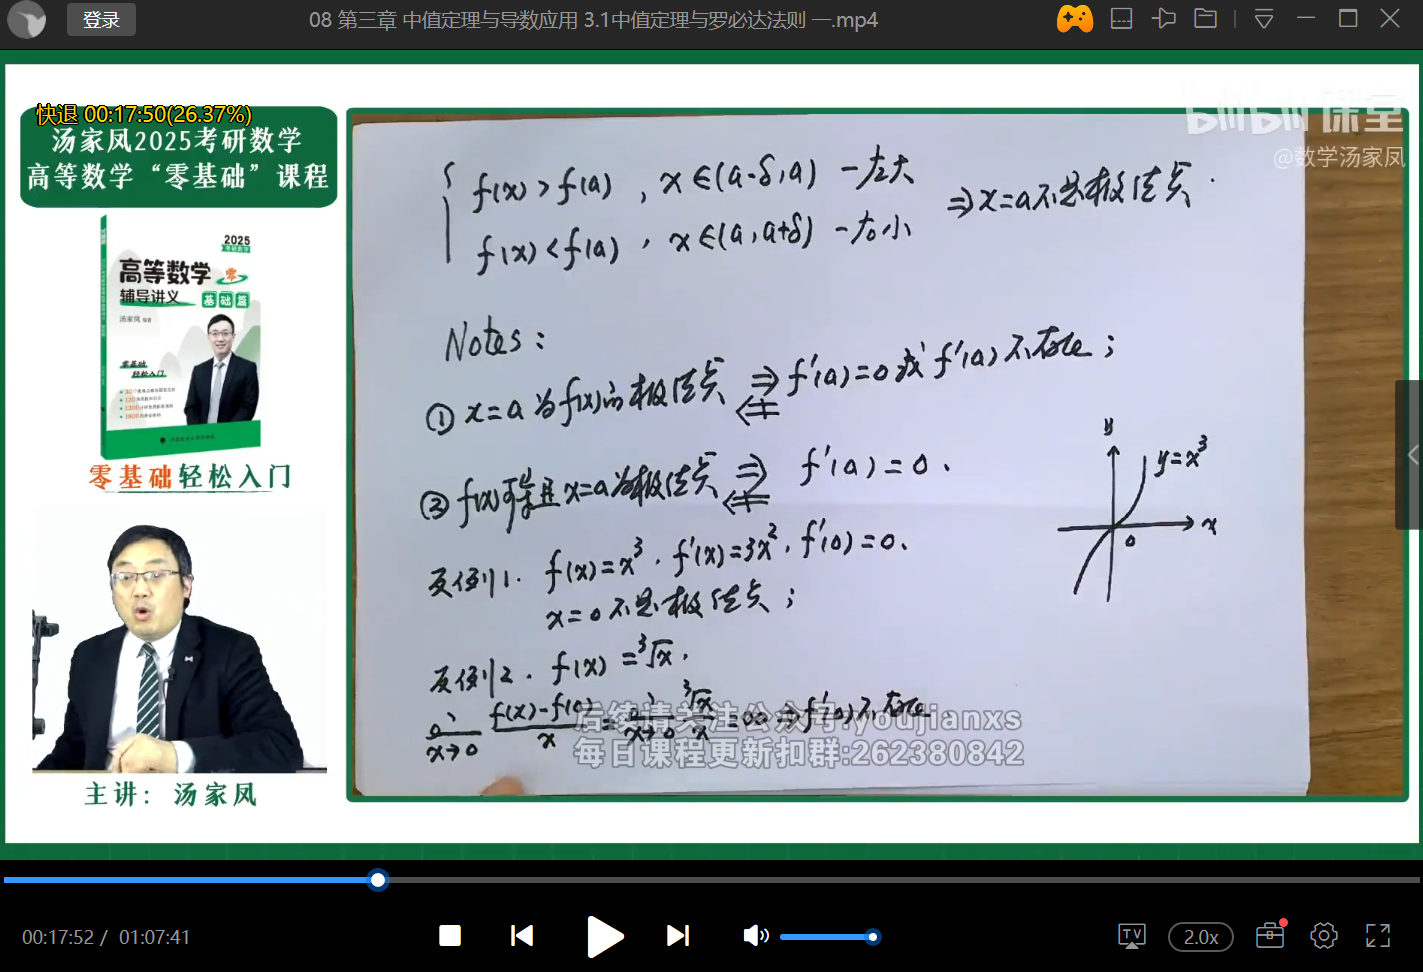 登录
08 第三章 中值定理与导数应用 3.1中值定理与罗必达法则 一.mp4
快退 00:17:50(26.37%)
汤家凤2025考研数学
高等数学“零基础”课程
bilibili 课堂
@数学汤家凤
2025
高等数学 零
辅导讲义 基础篇
汤家凤 编著
零基础
轻松入门
零基础轻松入门
主讲： 汤家凤
f(x) > f(a) , x∈(a-δ,a) -左大
f(x) < f(a) , x∈(a,a+δ) -右小
⇒x=a不是极值点.
Notes:
① x=a为f(x)的极值点 ⇒ f'(a)=0或f'(a)不存在;
⇍
② f(x)可导且x=a为极值点 ⇒ f'(a)=0.
⇍
反例1. f(x)=x³. f'(x)=3x², f'(0)=0.
x=0不是极值点;
y
y=x³
x
0
反例2. f(x)=³√x.
x→0 f(x)-f(0)/x = x→0 ³√x/x =∞⇒f'(0)不存在
后续请关注公众号:youjianxs
每日课程更新扣群:262380842
00:17:52 / 01:07:41
TV
2.0x